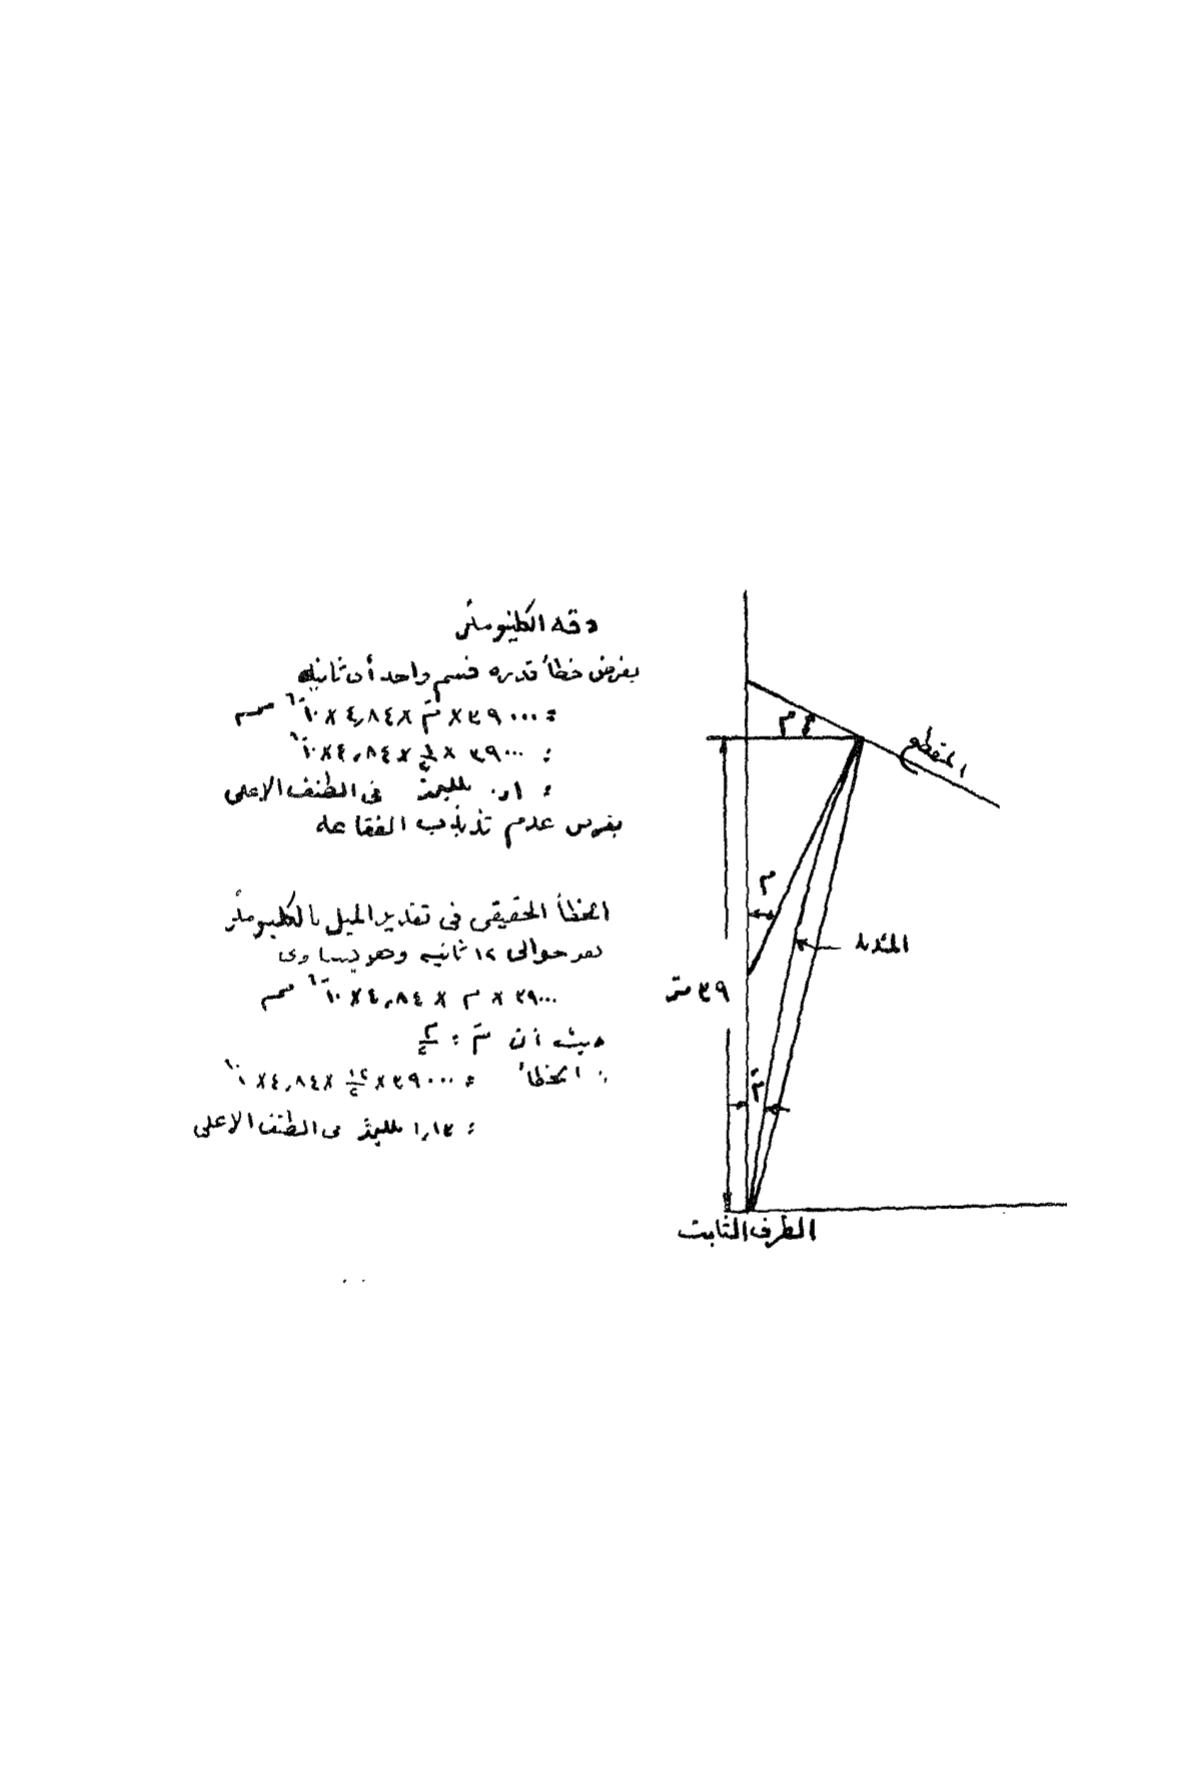 دقة الكلينومتر
بفرض خطأ قدره قسم واحد أى ثانيه
= ٣٩٠٠٠ × مَ × ٤,٨٤ × ١٠⁻⁶ مم
= ٣٩٠٠٠ × ١/٢ × ٤,٨٤ × ١٠⁻⁶
= ٠,١ ملليمتر فى الطنف الاعلى
بفرض عدم تذبذب الفقاعه
الخطأ الحقيقى فى تقدير الميل بالكلينومتر
هو حوالى ١٢ ثانيه وهو يساوى
٣٩٠٠٠ × م × ٤,٨٤ × ١٠⁻⁶ مم
حيث ان مَ = م/٢
∴ الخطأ = ٣٩٠٠٠ × ١٢/٢ × ٤,٨٤ × ١٠⁻⁶
= ١,١٣ ملليمتر فى الطنف الاعلى
المقطع
م
م
المئذنه
٣٩ متر
مَ
الطرف الثابت